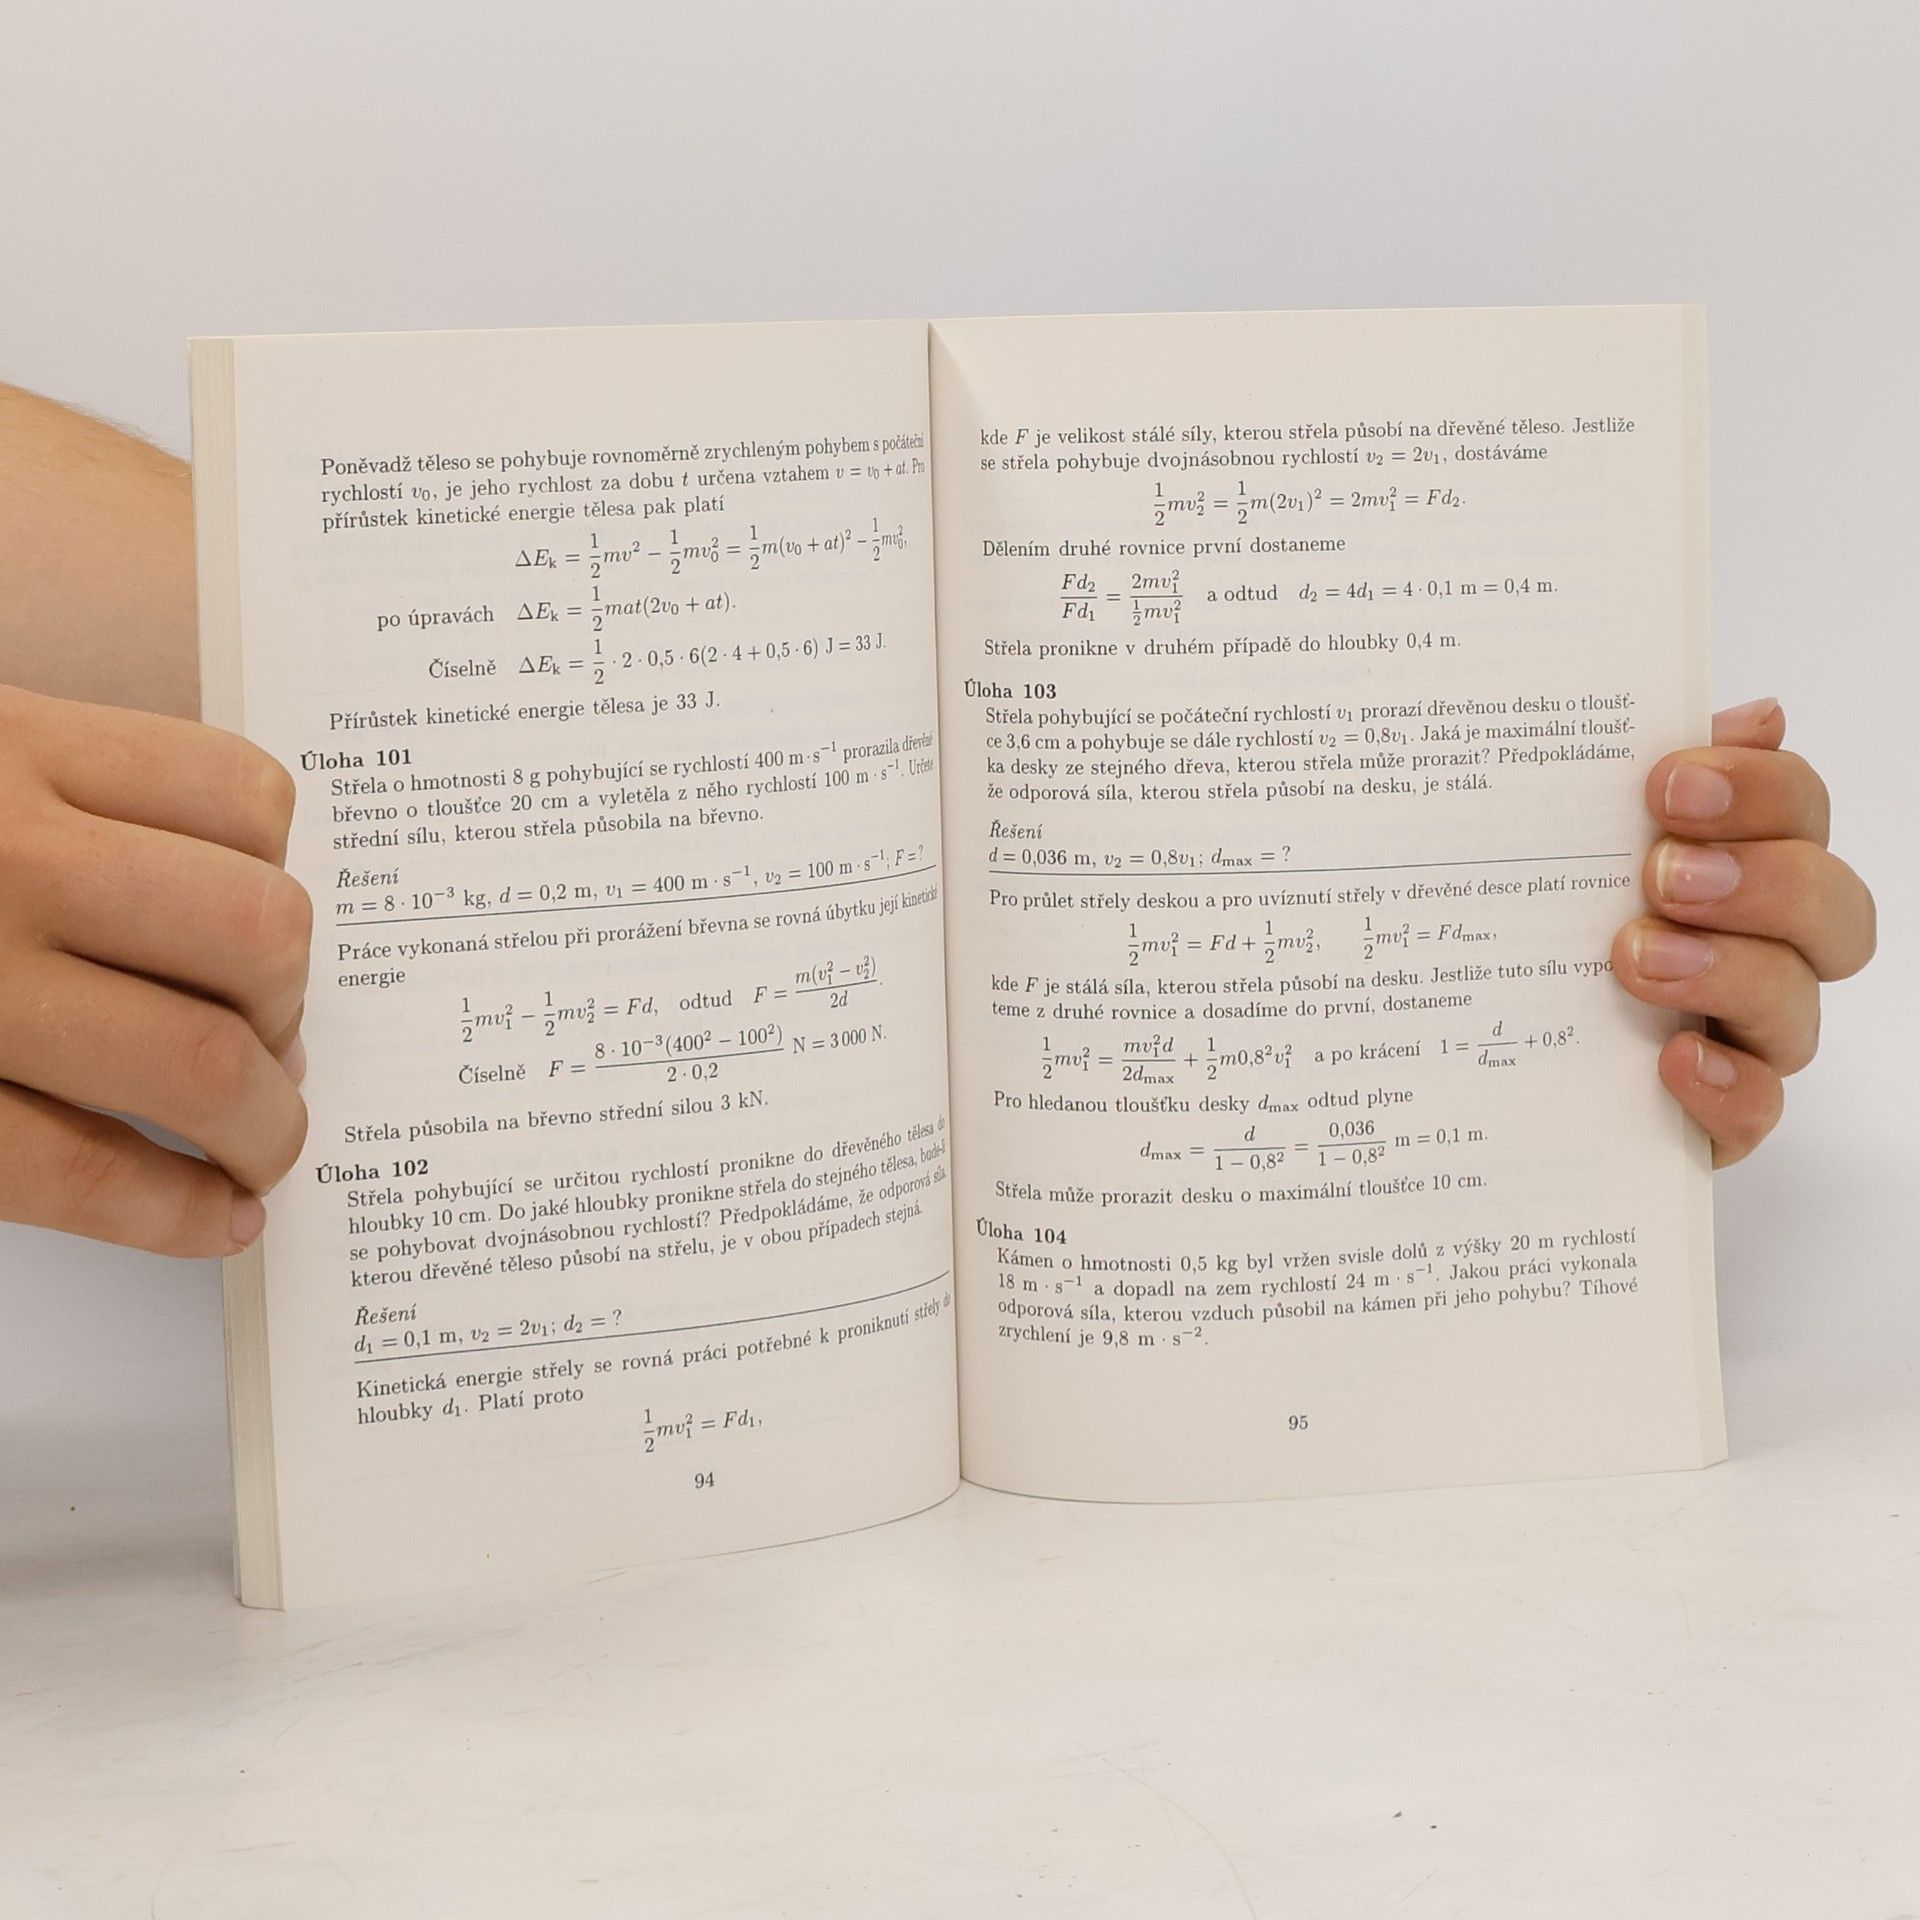 Poněvadž těleso se pohybuje rovnoměrně zrychleným pohybem s počáteční
rychlostí v₀, je jeho rychlost za dobu t určena vztahem v = v₀ + at. Pro
přírůstek kinetické energie tělesa pak platí
ΔEₖ = 1/2 mv² − 1/2 mv₀² = 1/2 m(v₀ + at)² − 1/2 mv₀²,
po úpravách ΔEₖ = 1/2 mat(2v₀ + at).
Číselně ΔEₖ = 1/2 · 2 · 0,5 · 6(2 · 4 + 0,5 · 6) J = 33 J.
Přírůstek kinetické energie tělesa je 33 J.
Úloha 101
Střela o hmotnosti 8 g pohybující se rychlostí 400 m · s⁻¹ prorazila dřevěné
břevno o tloušťce 20 cm a vyletěla z něho rychlostí 100 m · s⁻¹. Určete
střední sílu, kterou střela působila na břevno.
Řešení
m = 8 · 10⁻³ kg, d = 0,2 m, v₁ = 400 m · s⁻¹, v₂ = 100 m · s⁻¹; F = ?
Práce vykonaná střelou při prorážení břevna se rovná úbytku její kinetické
energie
1/2 mv₁² − 1/2 mv₂² = Fd, odtud F = m(v₁² − v₂²)/2d.
Číselně F = 8 · 10⁻³(400² − 100²)/2 · 0,2 N = 3 000 N.
Střela působila na břevno střední silou 3 kN.
Úloha 102
Střela pohybující se určitou rychlostí pronikne do dřevěného tělesa do
hloubky 10 cm. Do jaké hloubky pronikne střela do stejného tělesa, bude-li
se pohybovat dvojnásobnou rychlostí? Předpokládáme, že odporová síla,
kterou dřevěné těleso působí na střelu, je v obou případech stejná.
Řešení
d₁ = 0,1 m, v₂ = 2v₁; d₂ = ?
Kinetická energie střely se rovná práci potřebné k proniknutí střely do
hloubky d₁. Platí proto
1/2 mv₁² = Fd₁,
94
kde F je velikost stálé síly, kterou střela působí na dřevěné těleso. Jestliže
se střela pohybuje dvojnásobnou rychlostí v₂ = 2v₁, dostáváme
1/2 mv₂² = 1/2 m(2v₁)² = 2mv₁² = Fd₂.
Dělením druhé rovnice první dostaneme
Fd₂/Fd₁ = 2mv₁²/(1/2 mv₁²) a odtud d₂ = 4d₁ = 4 · 0,1 m = 0,4 m.
Střela pronikne v druhém případě do hloubky 0,4 m.
Úloha 103
Střela pohybující se počáteční rychlostí v₁ prorazí dřevěnou desku o tloušť-
ce 3,6 cm a pohybuje se dále rychlostí v₂ = 0,8v₁. Jaká je maximální tloušť-
ka desky ze stejného dřeva, kterou střela může prorazit? Předpokládáme,
že odporová síla, kterou střela působí na desku, je stálá.
Řešení
d = 0,036 m, v₂ = 0,8v₁; dmax = ?
Pro průlet střely deskou a pro uvíznutí střely v dřevěné desce platí rovnice
1/2 mv₁² = Fd + 1/2 mv₂², 1/2 mv₁² = Fdmax,
kde F je stálá síla, kterou střela působí na desku. Jestliže tuto sílu vypo
teme z druhé rovnice a dosadíme do první, dostaneme
1/2 mv₁² = mv₁²d/2dmax + 1/2 m0,8²v₁² a po krácení 1 = d/dmax + 0,8².
Pro hledanou tloušťku desky dmax odtud plyne
dmax = d/(1 − 0,8²) = 0,036/(1 − 0,8²) m = 0,1 m.
Střela může prorazit desku o maximální tloušťce 10 cm.
Úloha 104
Kámen o hmotnosti 0,5 kg byl vržen svisle dolů z výšky 20 m rychlostí
18 m · s⁻¹ a dopadl na zem rychlostí 24 m · s⁻¹. Jakou práci vykonala
odporová síla, kterou vzduch působil na kámen při jeho pohybu? Tíhové
zrychlení je 9,8 m · s⁻².
95